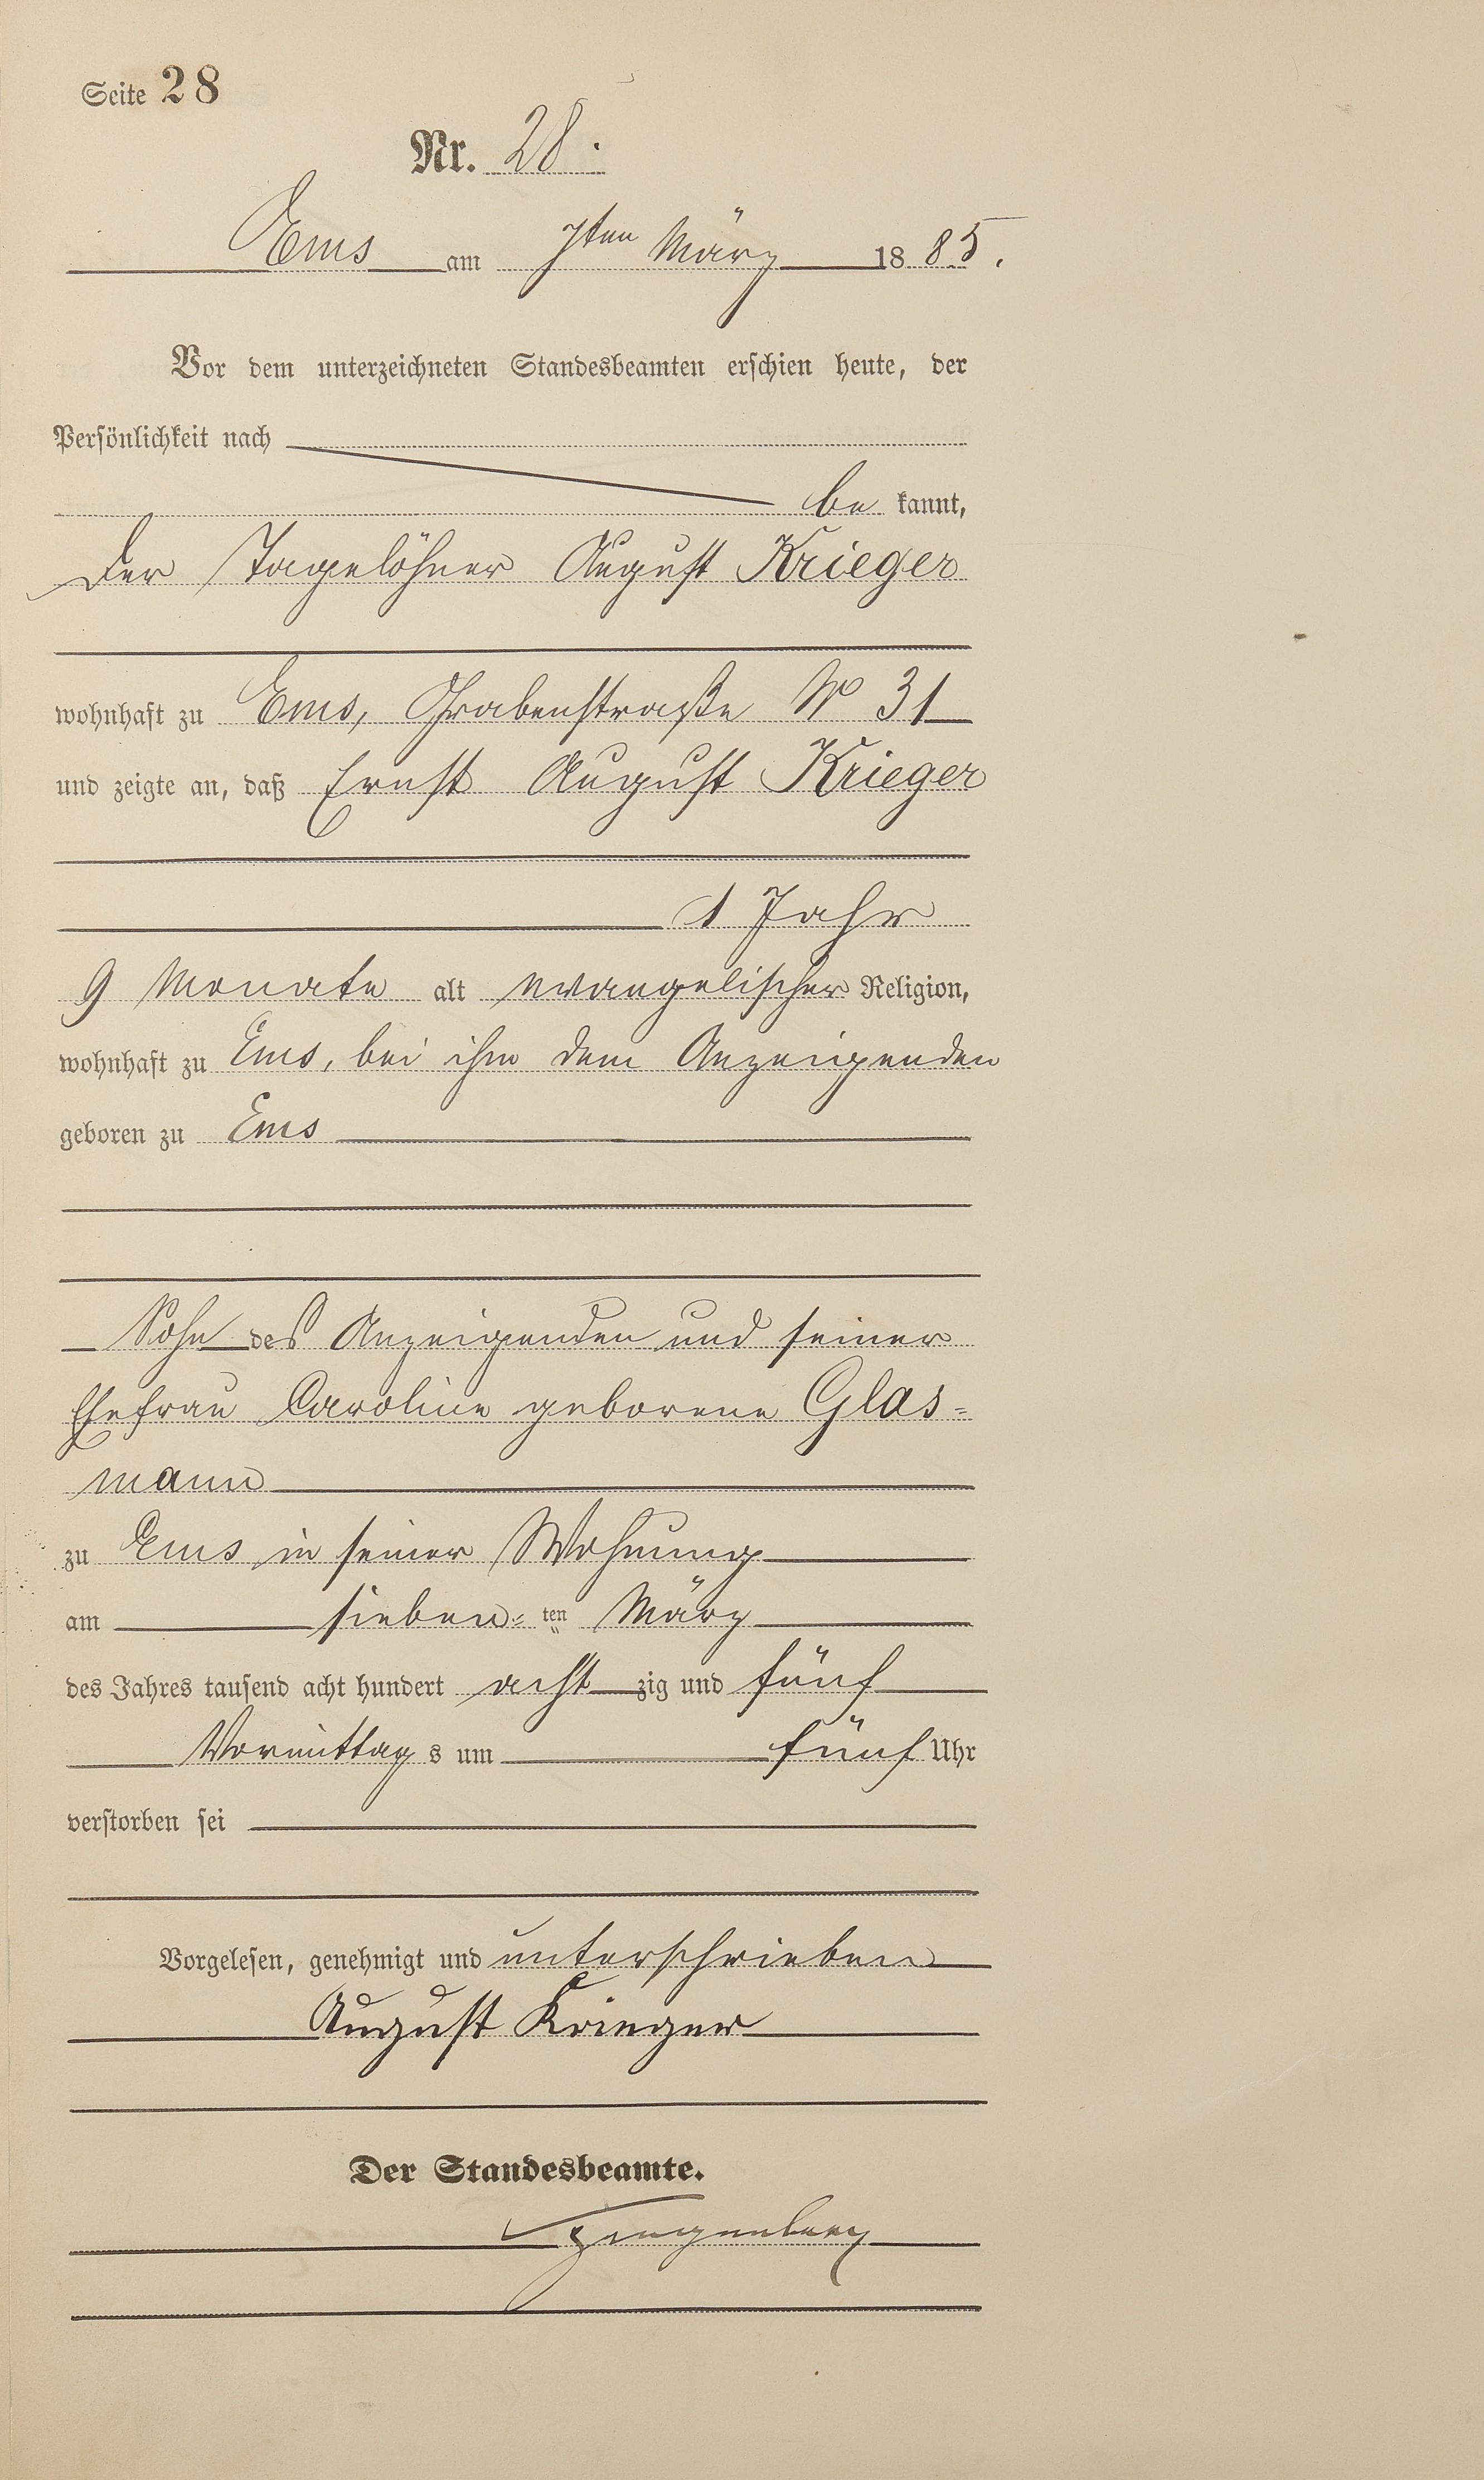 Seite 28
Nr. 28.
Ems am 7ten März 1885.
Vor dem unterzeichneten Standesbeamten erschien heute, der
Persönlichkeit nach
be kannt,
der Tagelöhner August Krieger
wohnhaft zu Ems, Grabenstraße No 31
und zeigte an, daß Ernst August Krieger
1 Jahr
9 Monate alt evangelischer Religion,
wohnhaft zu Ems, bei ihm dem Anzeigenden
geboren zu Ems
Sohn des Anzeigenden und seiner
Ehefrau Caroline geborene Glas=
mann
zu Ems in seiner Wohnung
am sieben= ten März
des Jahres tausend acht hundert acht zig und fünf
Vormittag s um fünf Uhr
verstorben sei
Vorgelesen, genehmigt und unterschrieben
August Krieger
Der Standesbeamte.